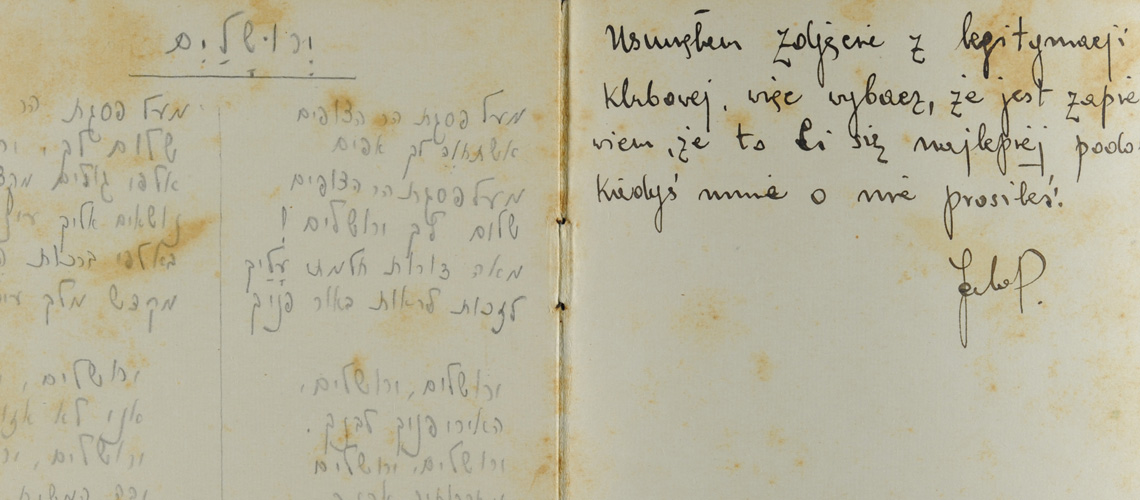 יְרוּשָׁלַיִם
מעל פסגת הר הצופים
אשתחוה לך אפים
מעל פסגת הר הצופים
שלום לך ירושלים!
מאה דורות חלמתי עָלַיִךְ
לזכות לראות באור פניך
ירושלים, ירושלים,
האירי פניך לבנך.
ירושלים, ירושלים
מעל פסגת הר
שלום לך, יר
אלפי גולים מקצ
נושאים אליך עין
באלפי ברכות ה
מקדש מלך עיר
ירושלים, י
אני לא אזו
ירושלים, יר
יבא המשיח
Usunęłam zdjęcie z legitymacji
klubowej, więc wybacz, że jest zapie
wiem, że to Ci się najlepiej podo
Kiedyś mnie o nie prosiłeś!